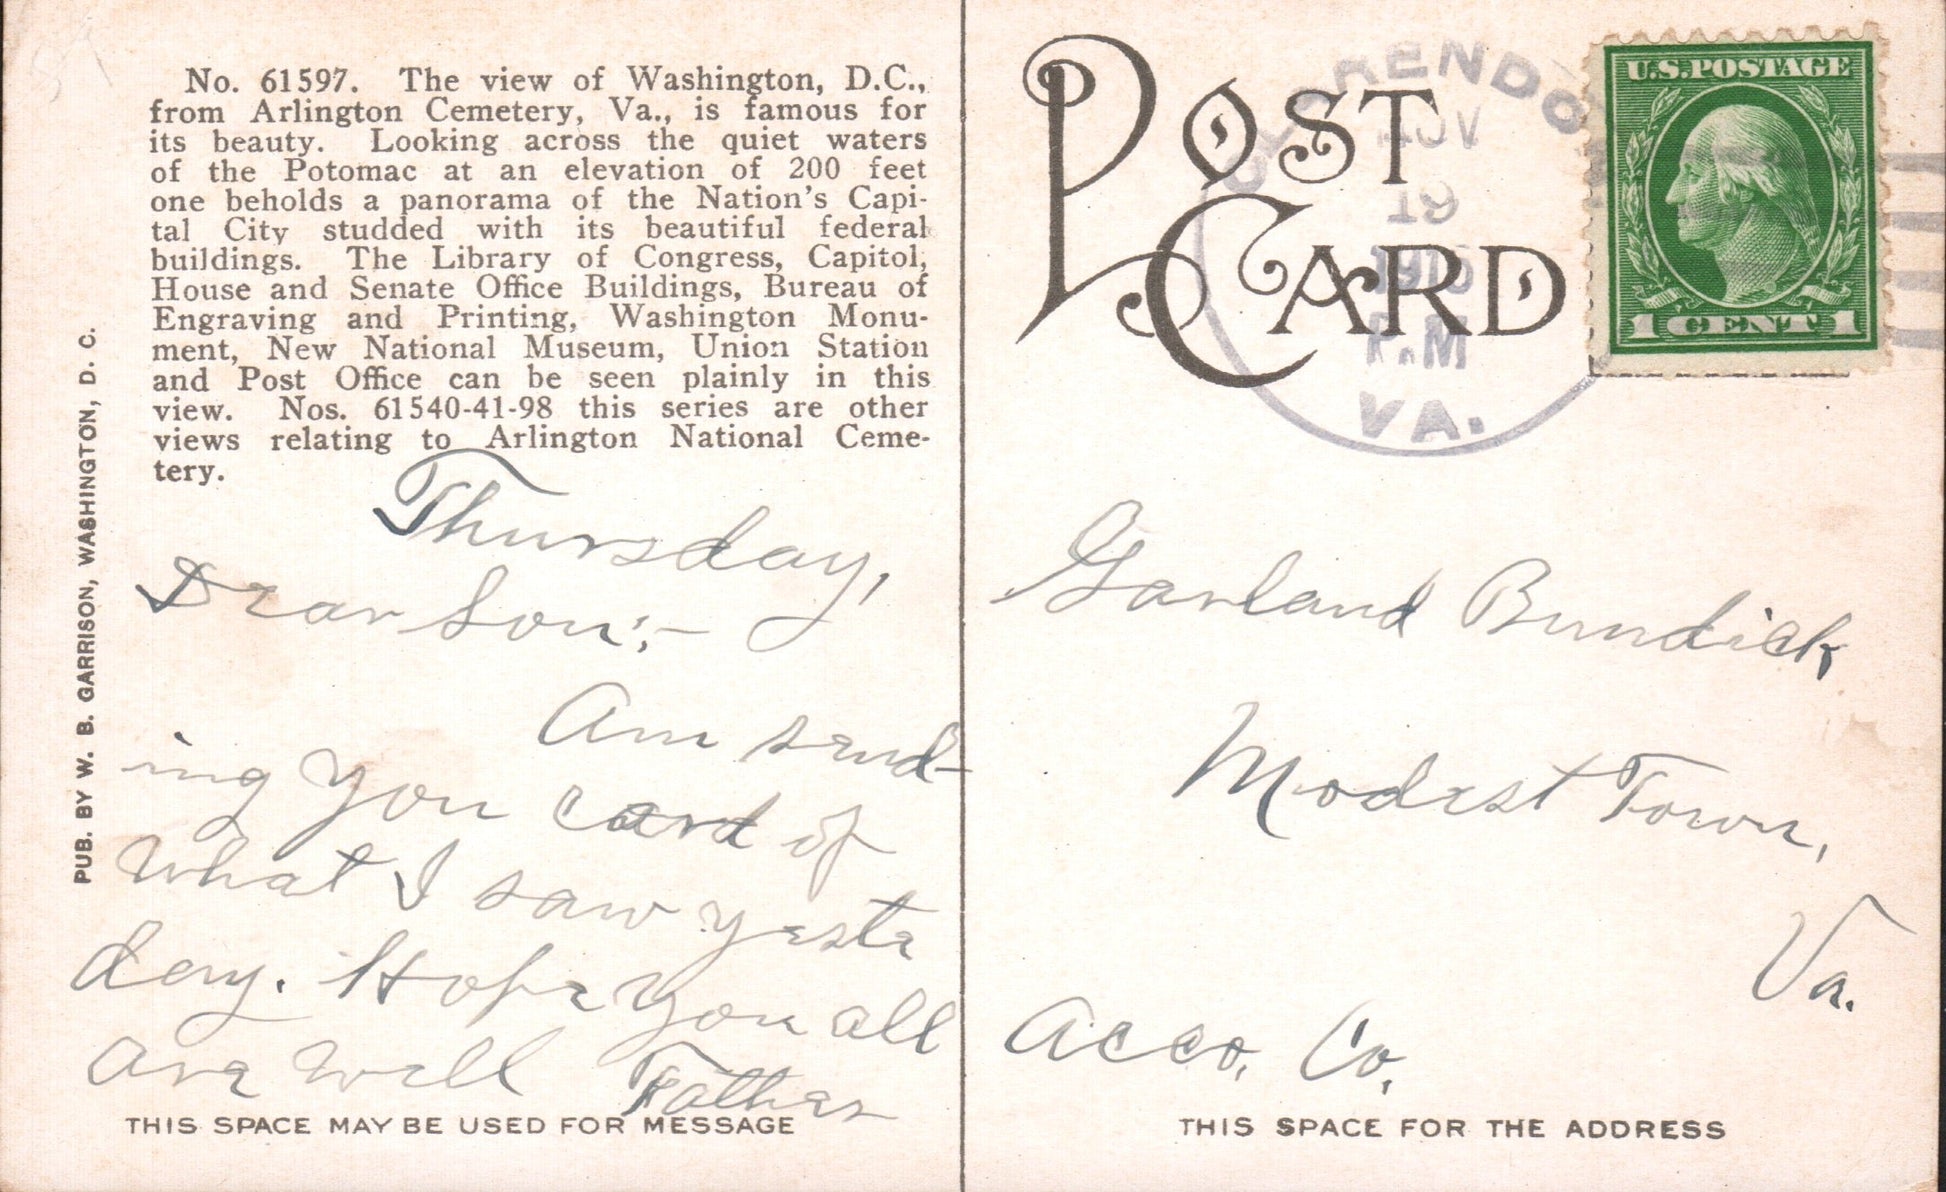 No. 61597. The view of Washington, D.C.,
from Arlington Cemetery, Va., is famous for
its beauty. Looking across the quiet waters
of the Potomac at an elevation of 200 feet
one beholds a panorama of the Nation's Capi-
tal City studded with its beautiful federal
buildings. The Library of Congress, Capitol,
House and Senate Office Buildings, Bureau of
Engraving and Printing, Washington Monu-
ment, New National Museum, Union Station
and Post Office can be seen plainly in this
view. Nos. 61540-41-98 this series are other
views relating to Arlington National Ceme-
tery.
PUB. BY W. B. GARRISON, WASHINGTON, D. C.
Thursday,
Dear Son:-
Am send-
ing you card of
what I saw yeste
day. Hope you all
are well Father
THIS SPACE MAY BE USED FOR MESSAGE
POST
CARD
NOV
19
P.M
VA.
U.S. POSTAGE
1 CENT 1
Garland Bundick
Modest Town,
Va.
Acco. Co.
THIS SPACE FOR THE ADDRESS